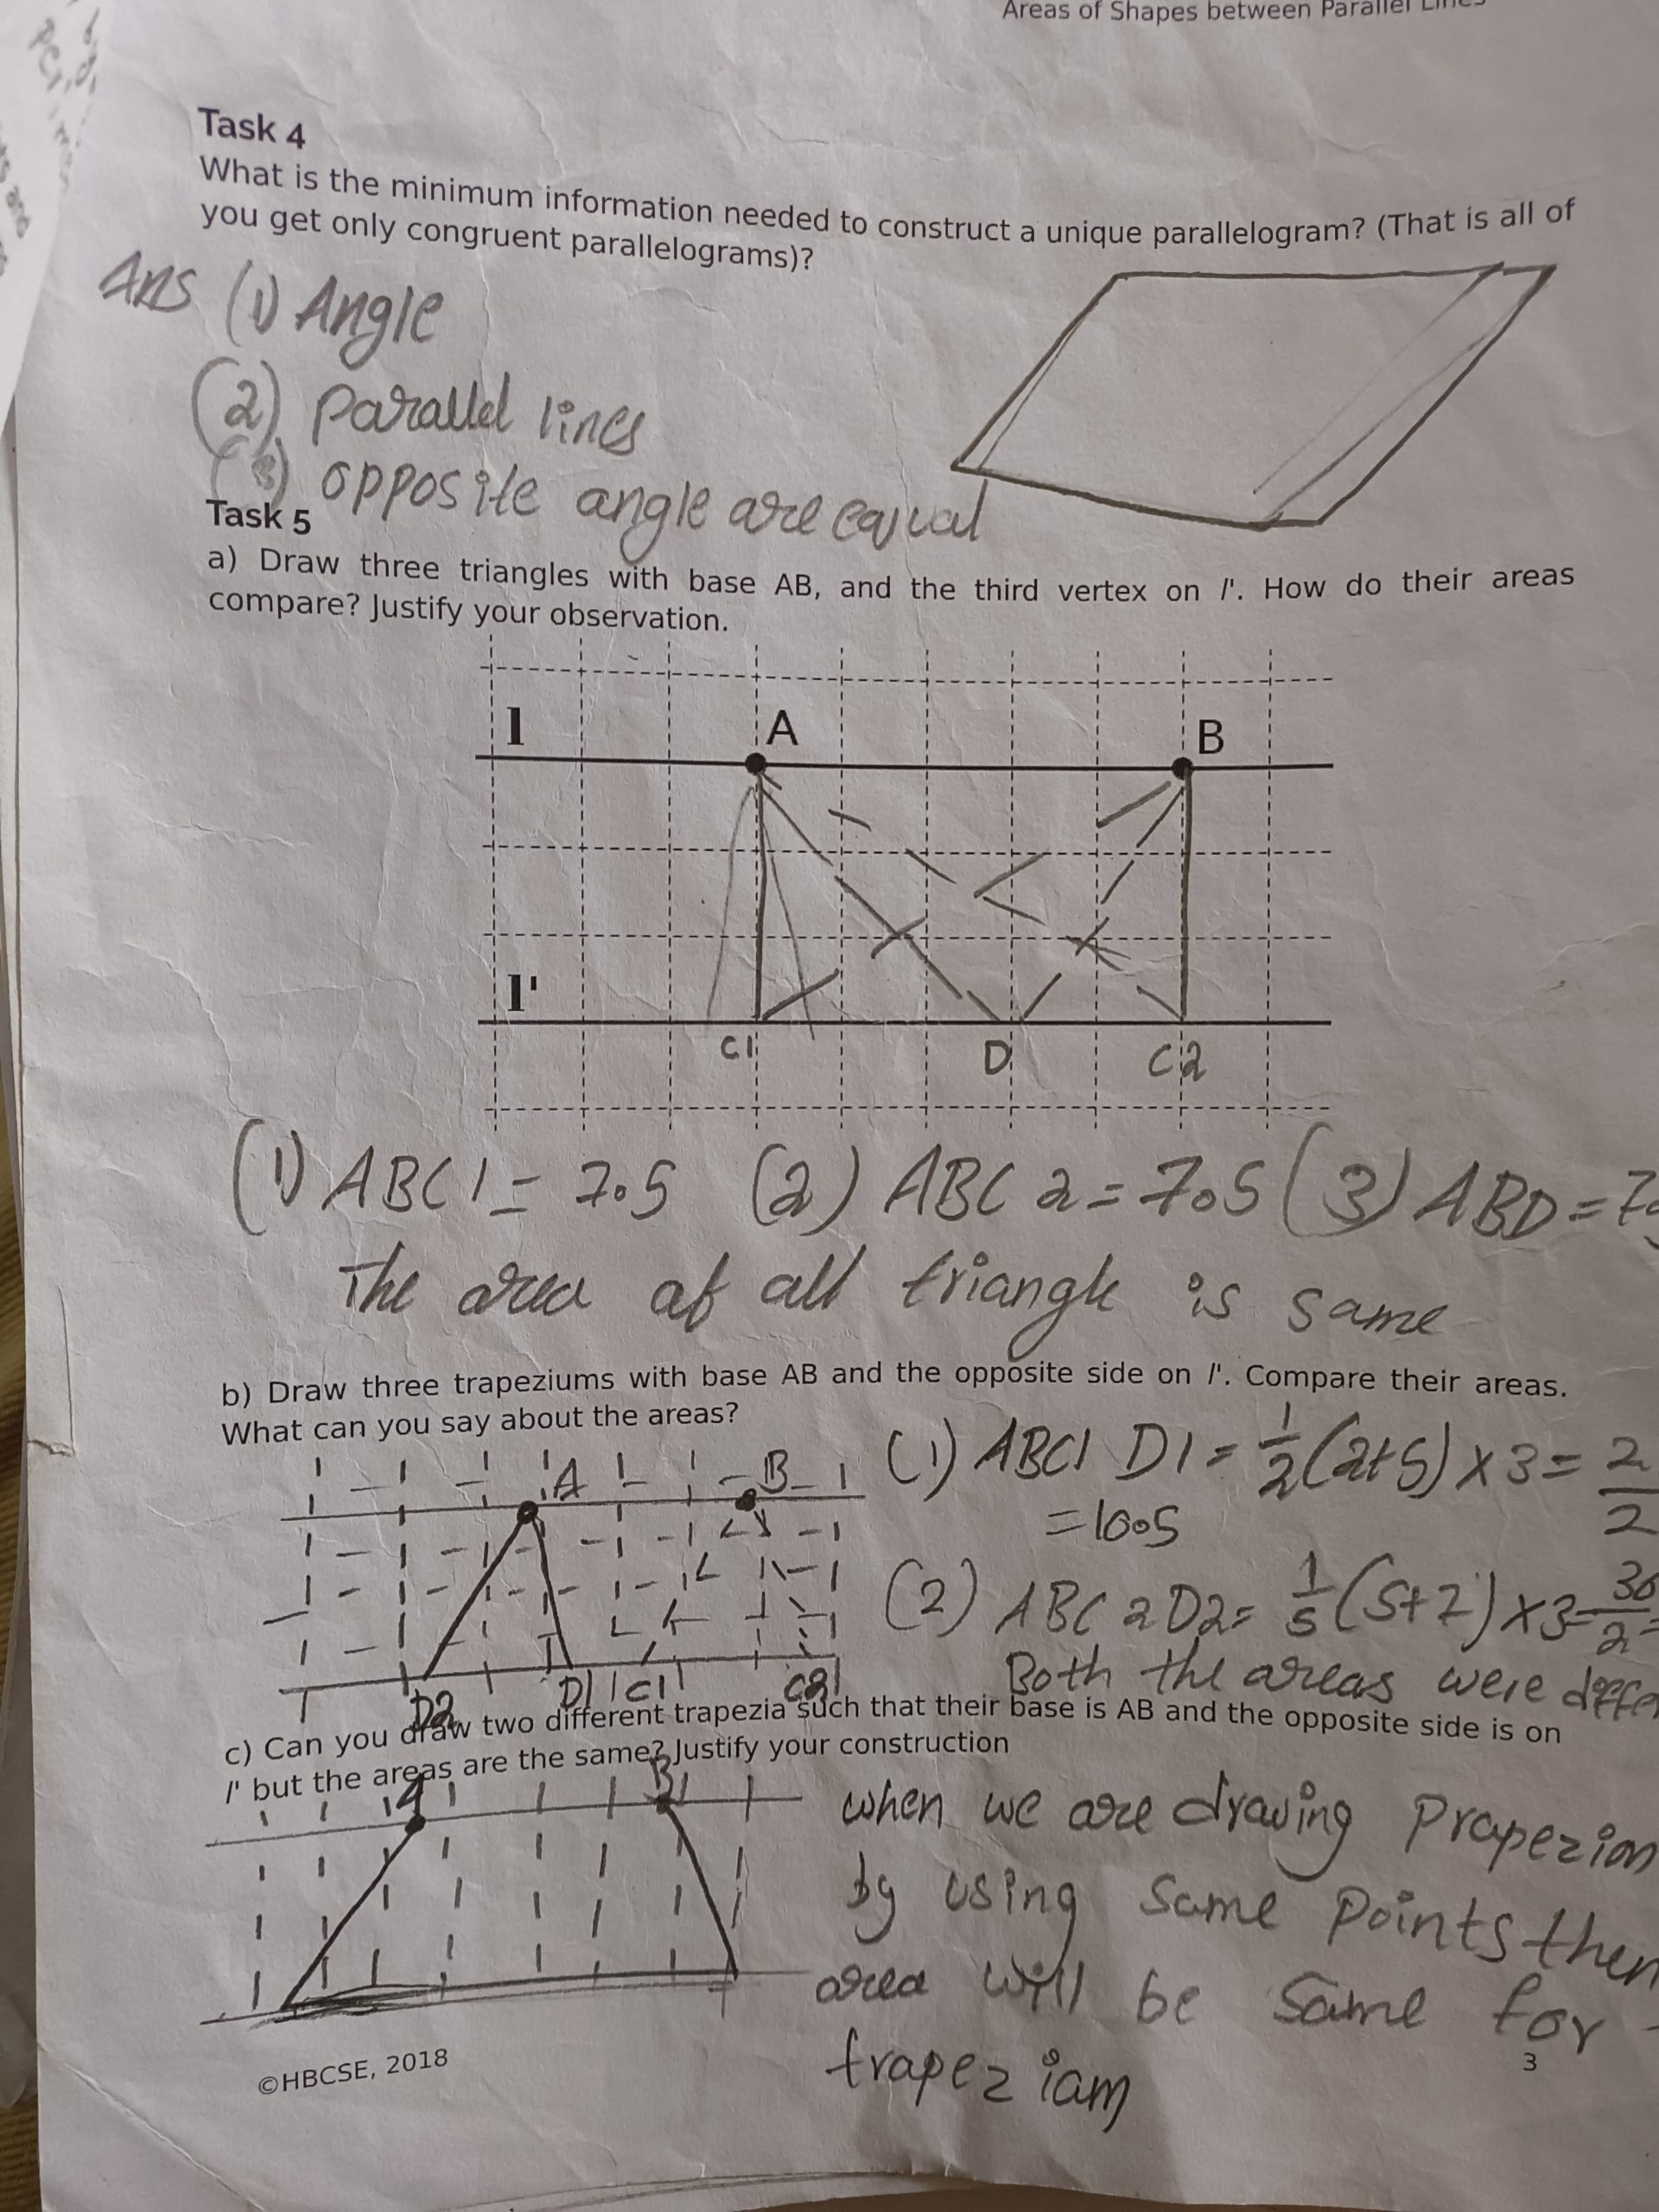 Areas of Shapes between Parallel Lines
Task 4
What is the minimum information needed to construct a unique parallelogram? (That is all of
you get only congruent parallelograms)?
Ans (1) Angle
(2) parallel lines
(3) opposite angle are equal
Task 5
a) Draw three triangles with base AB, and the third vertex on l'. How do their areas
compare? Justify your observation.
l A B
l'
C1 D C2
(1) ABC1 = 7.5 (2) ABC2 = 7.5 (3) ABD = 7.
The area of all triangle is same
b) Draw three trapeziums with base AB and the opposite side on l'. Compare their areas.
What can you say about the areas?
A B
(1) ABC1 D1 = 1/2 (2+5) x 3 = 2 / 2
= 10.5
(2) ABC2D2 = 1/5 (5+7) x 3 = 36 / 2 =
Both the areas were
D2 D1 C1 C2
c) Can you draw two different trapezia such that their base is AB and the opposite side is on
l' but the areas are the same? Justify your construction
A B
when we are drawing Prapezion
by using same points then
area will be same for
trapeziam
©HBCSE, 2018
3